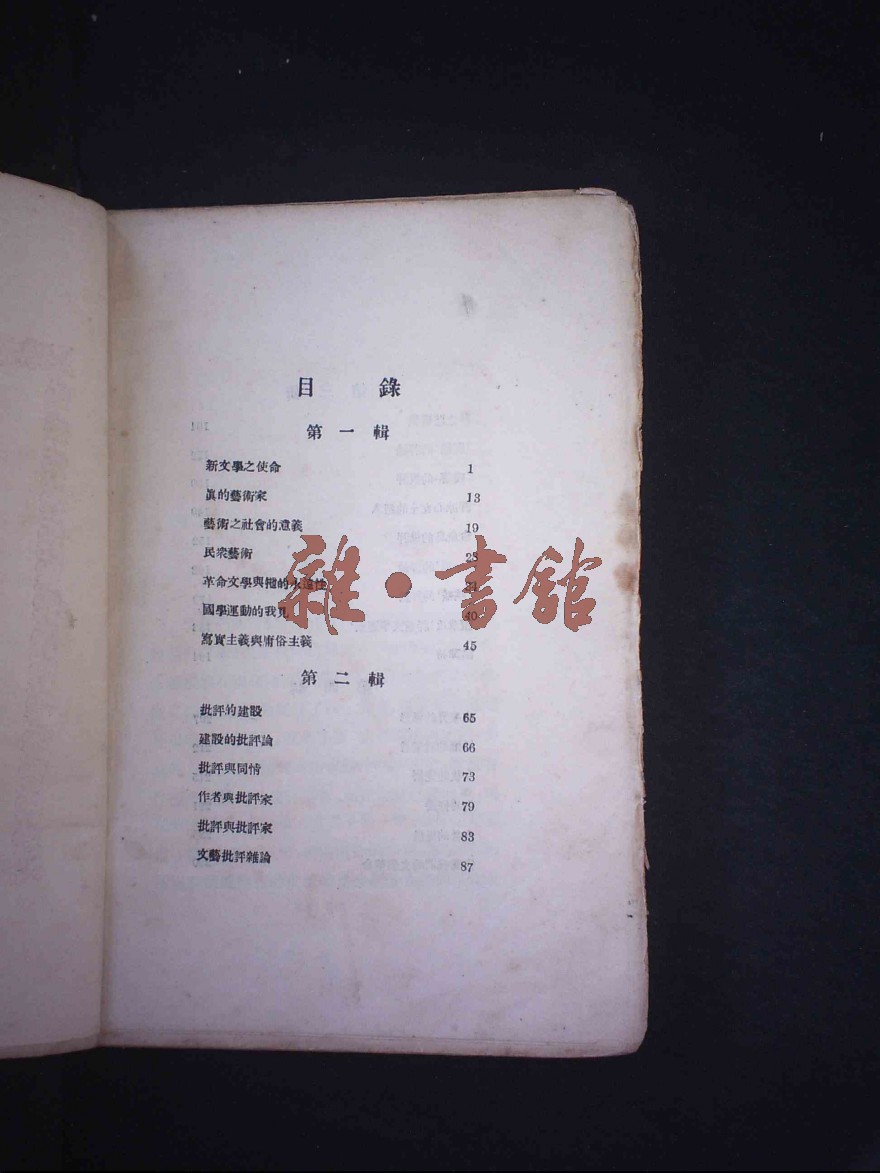 目錄
第一輯
新文學之使命 1
眞的藝術家 13
藝術之社會的意義 19
民衆藝術
革命文學與牠的永遠性
國學運動的我見 40
寫實主義與庸俗主義 45
第二輯
批評的建設 65
建設的批評論 66
批評與同情 73
作者與批評家 79
批評與批評家 83
文藝批評雜論 87
雜·書館